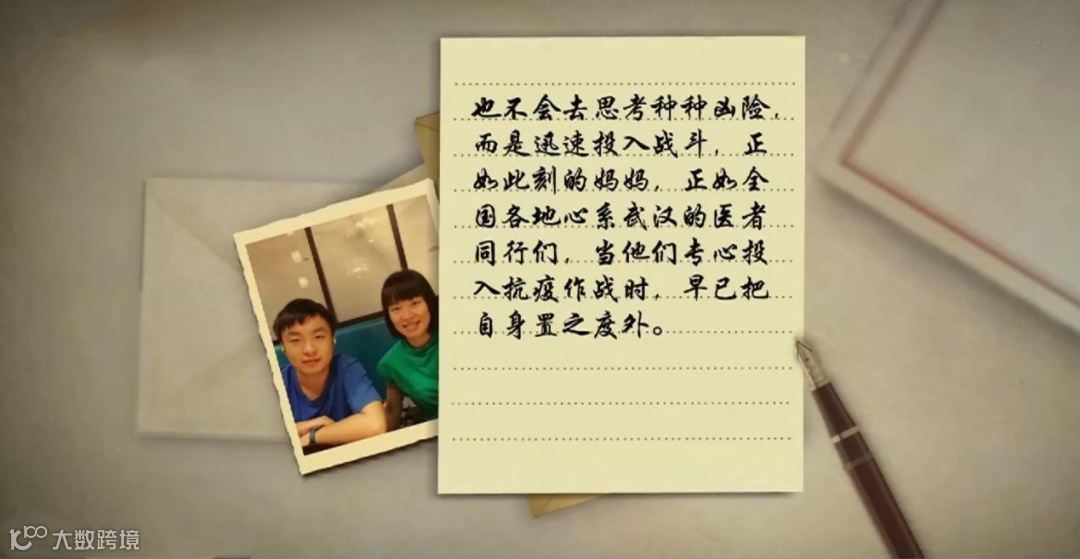 也不会去思考种种凶险,
而是迅速投入战斗,正
如此刻的妈妈,正如全
国各地心系武汉的医者
同行们,当他们专心投
入抗疫作战时,早已把
自身置之度外。
大数跨境